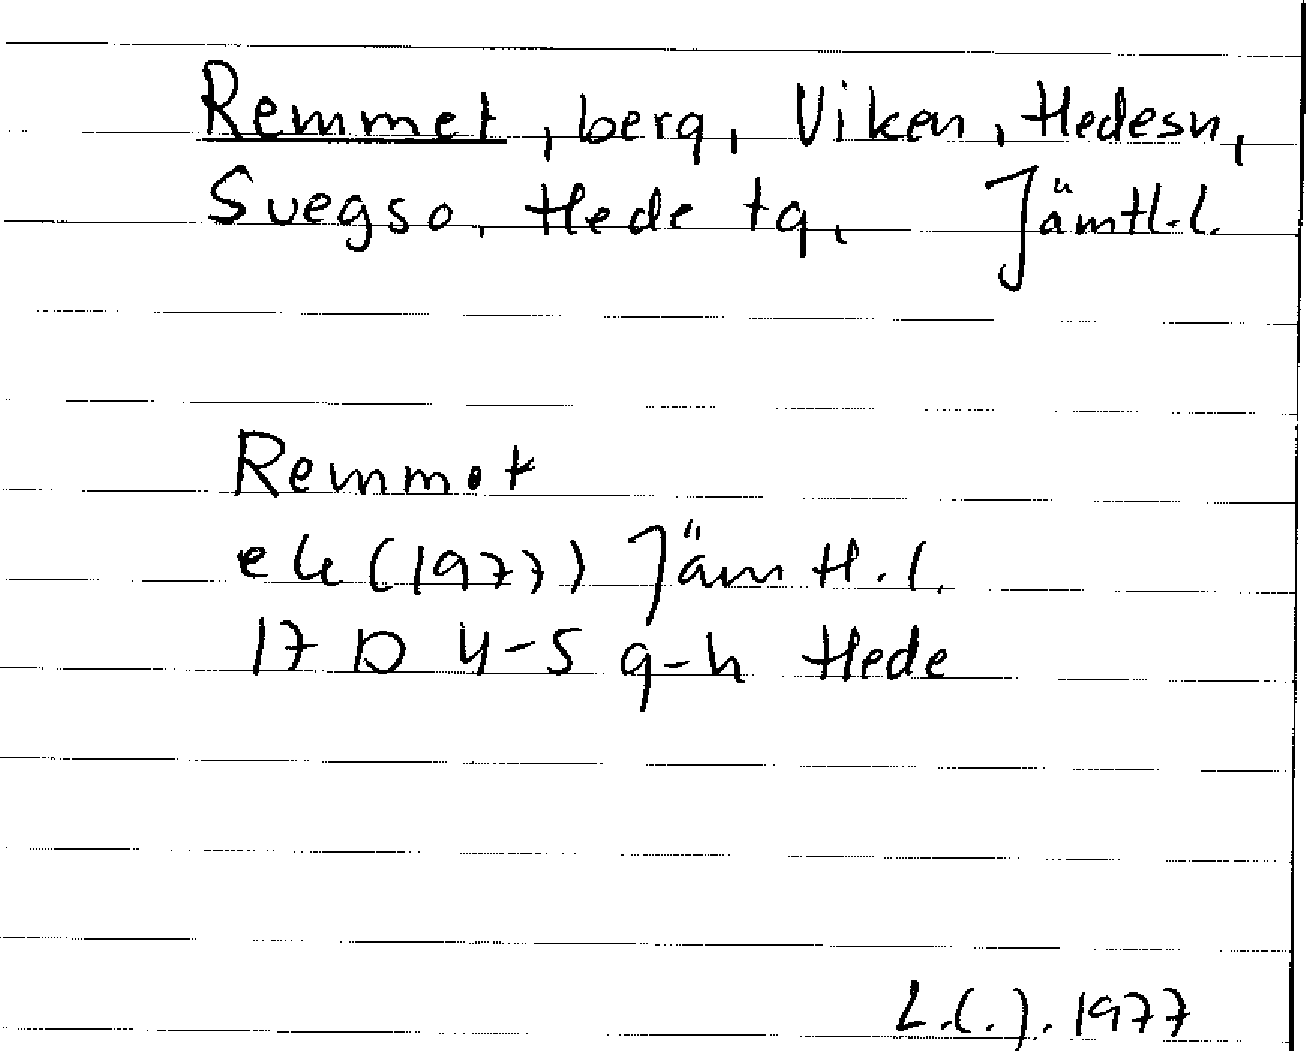 Remmet, berg, Viken, Hedesn,
Svegso, Hede tg, Jämtl.l.
Remmet
ek (1977) Jämtl.l.
17 D 4-5 g-h Hede
1977